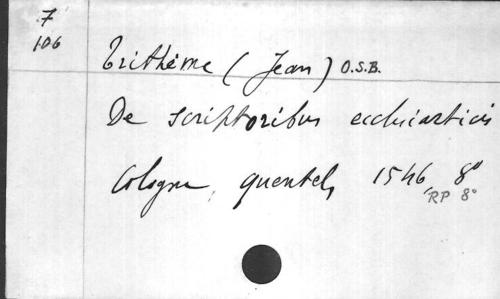 7
106
Trithème (Jean) O.S.B.
De scriptoribus ecclesiasticis
Cologne, quentel, 1546, 8°
RP 8°